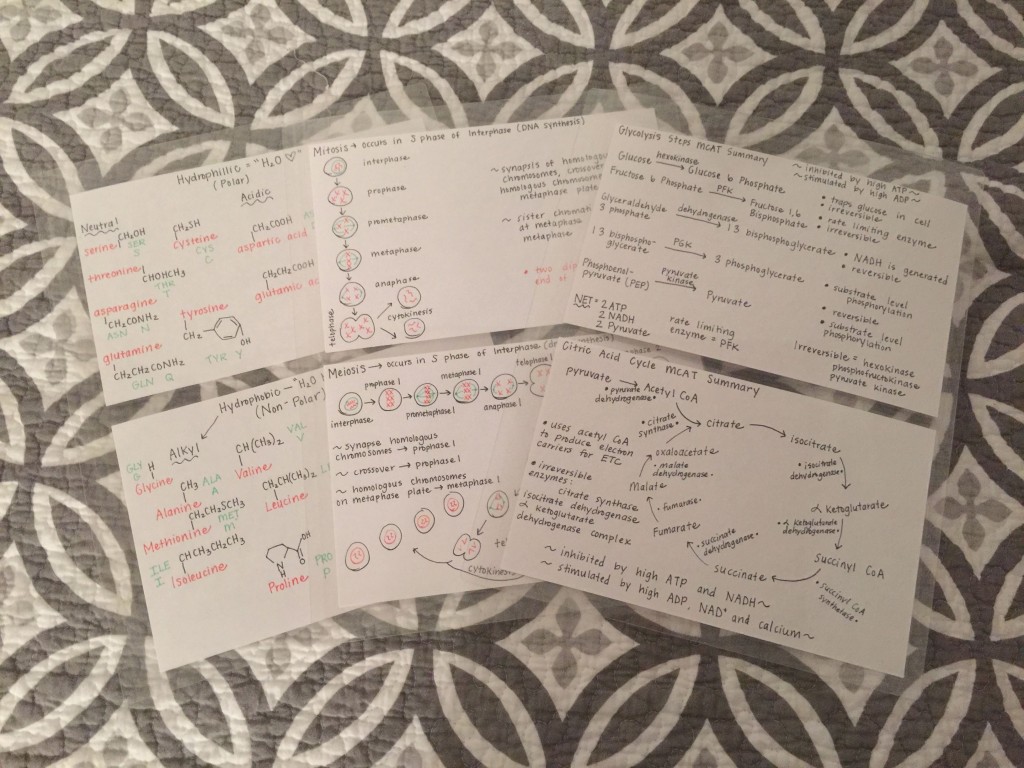 Hydrophillic = "H₂O ♡"
(Polar)
Neutral
Acidic
serine CH₂OH
SER
S
CH₂SH
cysteine
CYS
C
CH₂COOH
aspartic acid
threonine CHOHCH₃
THR
T
CH₂CH₂COOH
glutamic
asparagine
CH₂CONH₂
ASN N
tyrosine
CH₂
OH
TYR Y
glutamine
CH₂CH₂CONH₂
GLN Q
Mitosis → occurs in S phase of Interphase (DNA synthesis)
interphase
prophase
prometaphase
metaphase
anaphase
telophase
cytokinesis
~ synapsis of homologous
chromosomes, crossover
homologous chromosome
metaphase plate
~ sister chromat
at metaphase
metaphase
• two
end
Glycolysis Steps MCAT Summary
Glucose hexokinase → Glucose 6 Phosphate
Fructose 6 Phosphate PFK → Fructose 1,6
Bisphosphate
Glyceraldehyde
3 phosphate dehydrogenase → 1 3 bisphosphoglycerate
1 3 bisphospho-
glycerate PGK → 3 phosphoglycerate
Phosphoenol-
Pyruvate (PEP) pyruvate
kinase → Pyruvate
NET = 2 ATP
2 NADH
2 Pyruvate
rate limiting
enzyme = PFK
~ inhibited by high ATP ~
~ stimulated by high ADP ~
• traps glucose in cell
• irreversible
• rate limiting enzyme
• irreversible
• NADH is generated
• reversible
• substrate level
phosphorylation
• reversible
• substrate level
phosphorylation
Irreversible = hexokinase
phosphofructokinase
pyruvate kinase
Hydrophobic — "H₂O
(Non-Polar)
Alkyl
GLY
H
Glycine
CH(CH₃)₂ VAL
V
Valine
CH₃ ALA
A
Alanine
CH₂CH(CH₃)₂
Leucine
CH₂CH₂SCH₃
MET
M
Methionine
ILE
I
CHCH₃CH₂CH₃
Isoleucine
OH
N
H
PRO
P
Proline
Meiosis → occurs in S phase of Interphase
interphase
prophase 1
prometaphase 1
metaphase 1
anaphase 1
telophase
~ synapse homologous
chromosomes → prophase 1
~ crossover → prophase 1
~ homologous chromosomes
on metaphase plate → metaphase 1
cytokinesis
Citric Acid Cycle MCAT Summary
Pyruvate → Acetyl CoA
• pyruvate
dehydrogenase •
• citrate
synthase •
citrate
isocitrate
• isocitrate
dehydrogenase •
α Ketoglutarate
• α Ketoglutarate
dehydrogenase •
Succinyl CoA
• succinyl CoA
synthetase •
succinate
• succinate
dehydrogenase •
Fumarate
• fumarase •
Malate
• malate
dehydrogenase •
oxaloacetate
• uses acetyl CoA
to produce electron
carriers for ETC
• irreversible
enzymes:
citrate synthase
isocitrate dehydrogenase
α Ketoglutarate
dehydrogenase complex
~ inhibited by high ATP and NADH ~
~ stimulated by high ADP, NAD⁺ and calcium ~